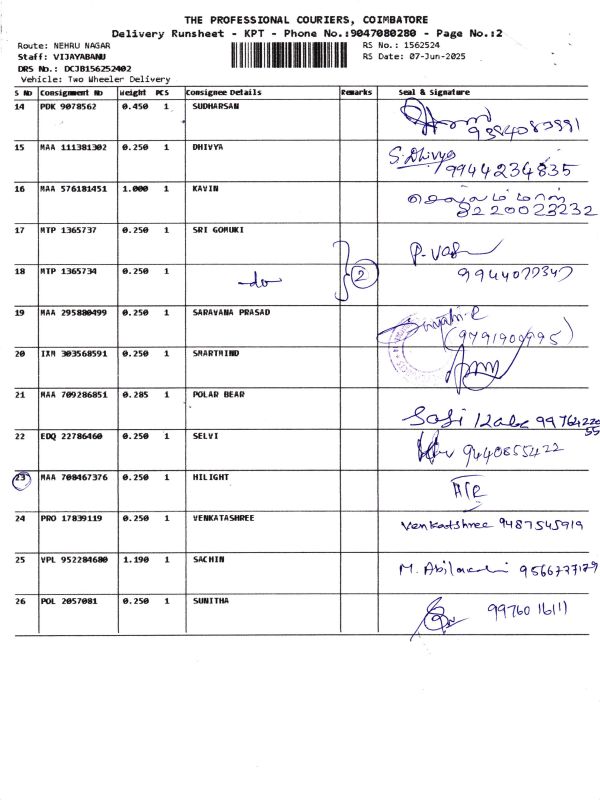 THE PROFESSIONAL COURIERS, COIMBATORE
Delivery Runsheet - KPT - Phone No.:9047080280 - Page No.:2
Route: NEHRU NAGAR
RS No.: 1562524
Staff: VIJAYABANU
RS Date: 07-Jun-2025
DRS No.: DCJB156252402
Vehicle: Two Wheeler Delivery
S No Consignment No Weight PCS Consignee Details Remarks Seal & signature
14 PDK 9078562 0.450 1 SUDHARSAN
15 MAA 111381302 0.250 1 DHIVYA S. Dhivya
9944234835
16 MAA 576181451 1.000 1 KAVIN
8220023232
17 MTP 1365737 0.250 1 SRI GOMUKI
18 MTP 1365734 0.250 1 -do- 2 9944077347
19 MAA 295880499 0.250 1 SARAVANA PRASAD
(9791900995)
20 IXM 303568591 0.250 1 SMARTMIND
21 MAA 709286851 0.285 1 POLAR BEAR
Sasi Kala 9976422055
22 EDQ 22786460 0.250 1 SELVI 9440855422
23 MAA 708467376 0.250 1 HILIGHT
24 PRO 17839119 0.250 1 VENKATASHREE Venkatshree 9487545919
25 VPL 952284680 1.190 1 SACHIN 9566777179
26 POL 2057081 0.250 1 SUNITHA 9976016111